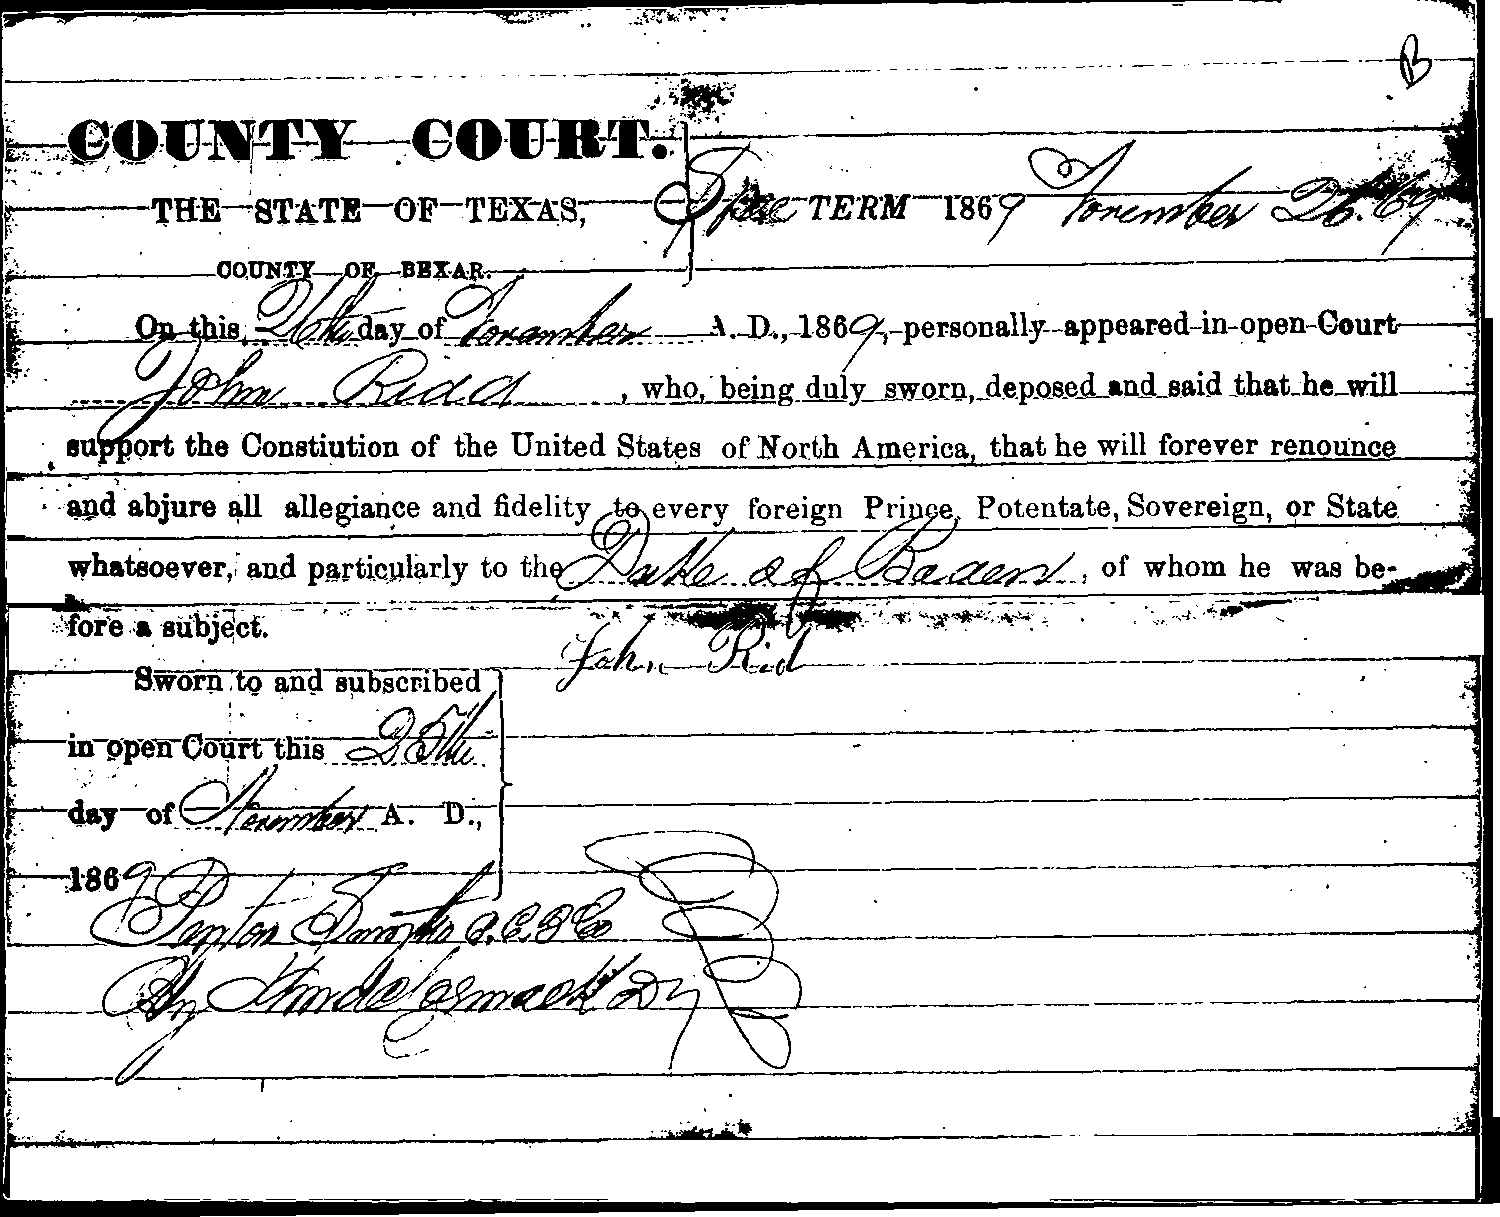 B
COUNTY COURT.
THE STATE OF TEXAS,
Spec TERM 1869 November 26. 69
COUNTY OF BEXAR.
On this 26th day of November A. D., 1869, personally appeared in open Court
John Ridd, who, being duly sworn, deposed and said that he will
support the Constiution of the United States of North America, that he will forever renounce
and abjure all allegiance and fidelity to every foreign Prince, Potentate, Sovereign, or State
whatsoever, and particularly to the Duke of Baden, of whom he was be-
fore a subject.
John Rid
Sworn to and subscribed
in open Court this 25th
day of November A. D.,
1869
C. C. B Co
By Dy